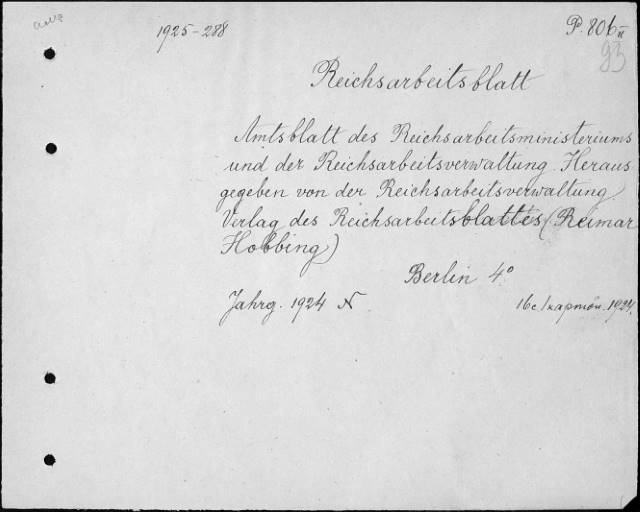 1925-288
P. 806 II
93
Reichsarbeitsblatt
Amtsblatt des Reichsarbeitsministeriums
und der Reichsarbeitsverwaltung. Heraus
gegeben von der Reichsarbeitsverwaltung.
Verlag des Reichsarbeitsblattes (Reimar
Hobbing)
Berlin 4°
Jahrg. 1924 N
1924.